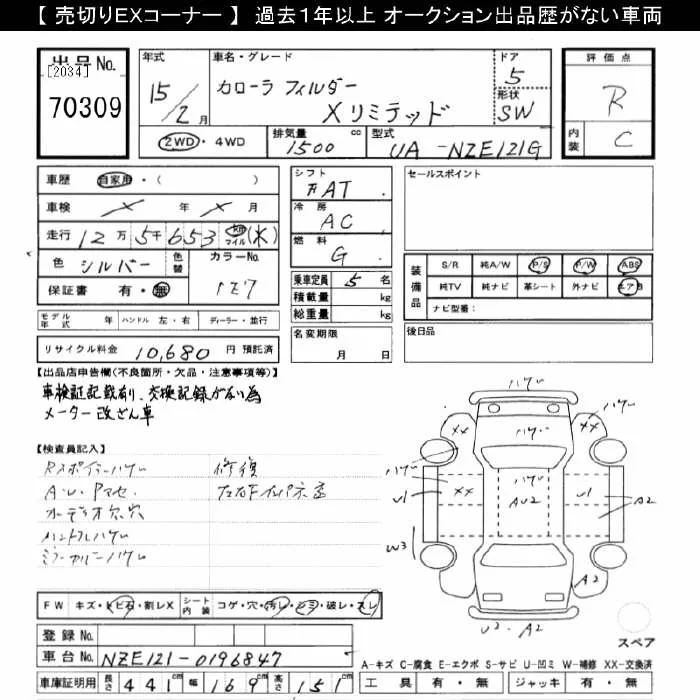 【 売切りEXコーナー 】 過去１年以上 オークション出品歴がない車両
出品 No.
[2034]
70309
年式
15/2月
車名・グレード
カローラ フィルダー
Xリミテッド
ドア
5
形状
SW
評価点
R
内装
C
2WD・4WD
排気量 1500 cc
型式 UA -NZE121G
車歴 自家用・( )
車検 年 月
走行 12万5千653 km マイル (木)
色 シルバー
色替
カラーNo. 1E7
保証書 有・無
シフト
AT
冷房
AC
燃料
G
乗車定員 5名
積載量 kg
総重量 kg
名変期限
月 日
セールスポイント
装備品
S/R 純A/W P/S P/W ABS
純TV 純ナビ 革シート 外ナビ エアB
ナビ型番：
後日品
モデル年式 年 ハンドル 左・右 ディーラー・並行
リサイクル料金 10,680 円 預託済
【出品店申告欄(不良箇所・欠品・注意事項等)】
車検証記載有り、交換記録がない為
メーター改ざん車
【検査員記入】
Rスポイラーハゲ
A・U・Pマセ
オーディオ欠穴
ハンドルハゲ
ミラーカバーハゲ
修復
ハゲ
ハゲ
ハゲ
XX
XX
ハゲ
ハゲ
ハゲ
U1
XX
AU2
U1
A2
W3
A2
U2・A2
スペア
FW キズ・トビ石・割レX
シート内装 コゲ・穴・汚レ・シミ・破レ・スレ
登録 No.
車台 No. NZE121-0196847
車庫証明用 長さ 441 cm 幅 169 cm 高さ 151 cm
A-キズ C-腐食 E-エクボ S-サビ U-凹ミ W-補修 XX-交換済
工具 有・無 ジャッキ 有・無